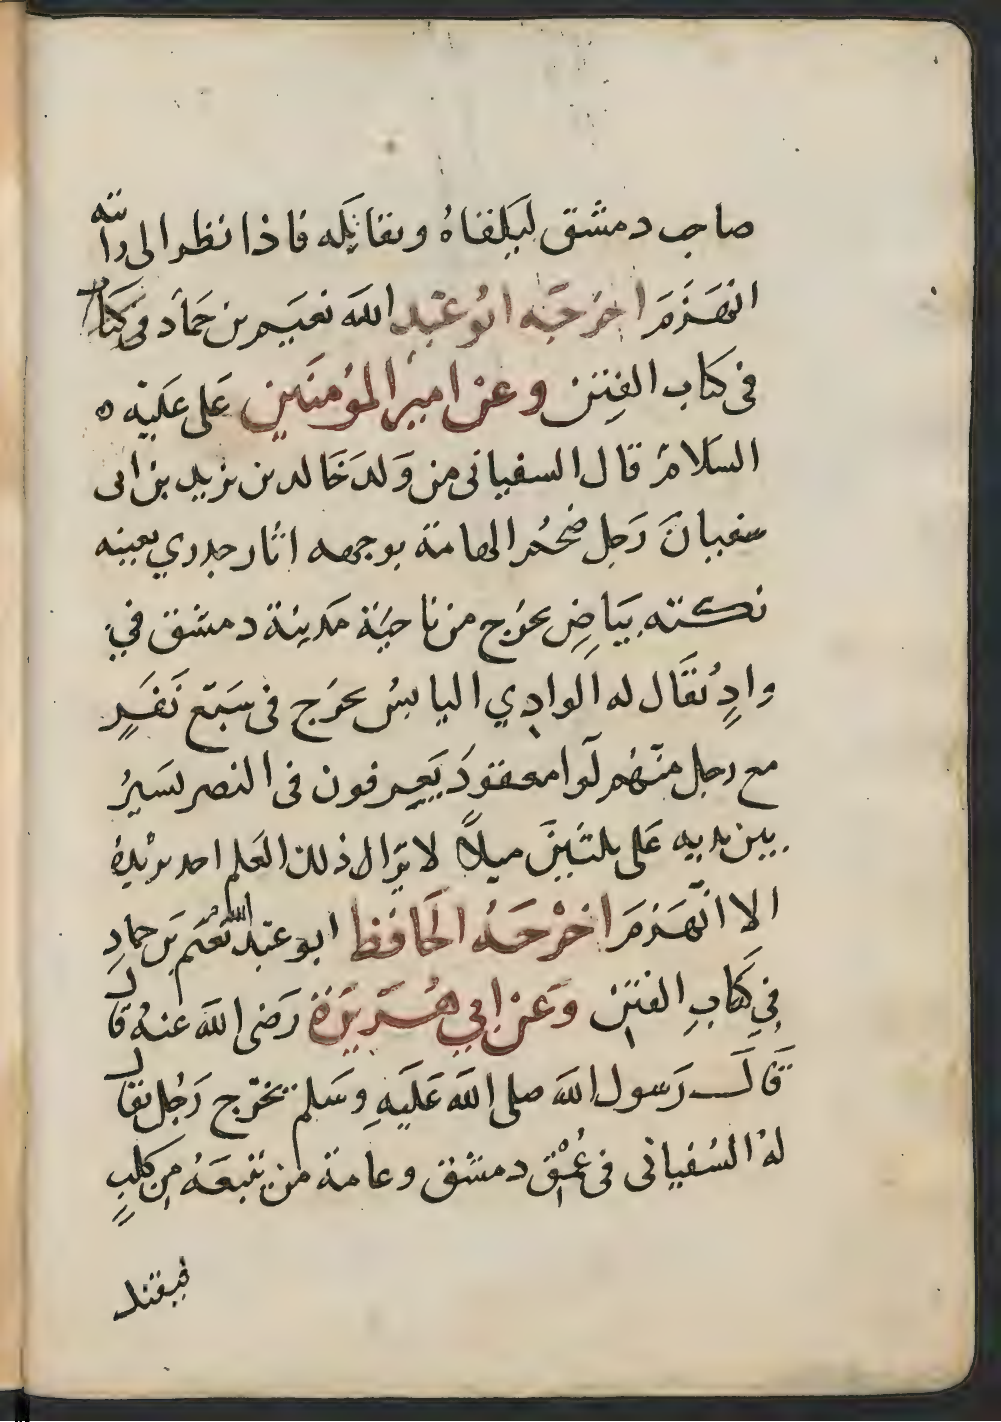 صاحب دمشق ليلقاه ويقاتله فاذا نظر الى رايته
انهزم اخرجه ابو عبد الله نعيم بن حماد فى كتاب
فى كتاب الفتن وعن امير المؤمنين على عليه ه
السلام قال السفيانى من ولد خالد بن يزيد بن ابى
سفيان رجل ضخم الهامة بوجهه اثار جدري بعينه
نكتة بياض يخرج من ناحية مدينة دمشق في
وادٍ يقال له الوادي اليابس يخرج فى سبع نفرٍ
مع رجل منهم لوا معقود يعرفون فى النصر يسير
بين يديه على ثلثين ميلاً لا يرى ذلك العلم احد يريده
الا انهزم اخرجه الحافظ ابو عبد الله نعيم بن حمادٍ
فى كتابِ الفتن وعن ابي هريرة رضى الله عنه قال
قال رسول الله صلى الله عليه وسلم يخرج رجل يقال
له السفيانى فى عمق دمشق وعامة من يتبعه من كلبٍ
فيقتل